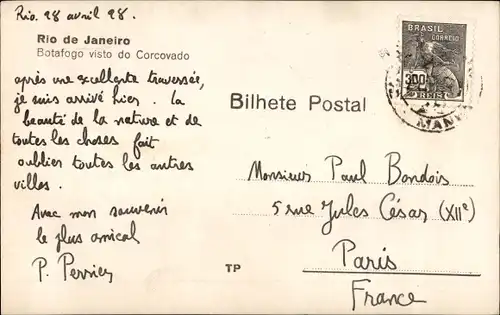 Rio. 28 avril 28.
Rio de Janeiro
Botafogo visto do Corcovado
après une excellente traversée,
je suis arrivé hier. La
beauté de la nature et de
toutes les choses fait
oublier toutes les autres
villes.
Avec mon souvenir
le plus amical
P. Perrier
TP
Bilhete Postal
BRASIL
CORREIO
300
REIS
MAN
Monsieur Paul Bondois
5 rue Jules César (XIIe)
Paris
France